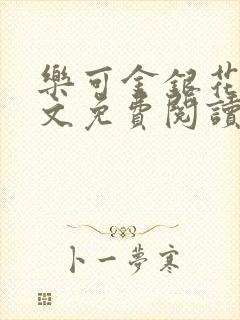 樂可金銀花
文免費閱讀
卜一夢寒